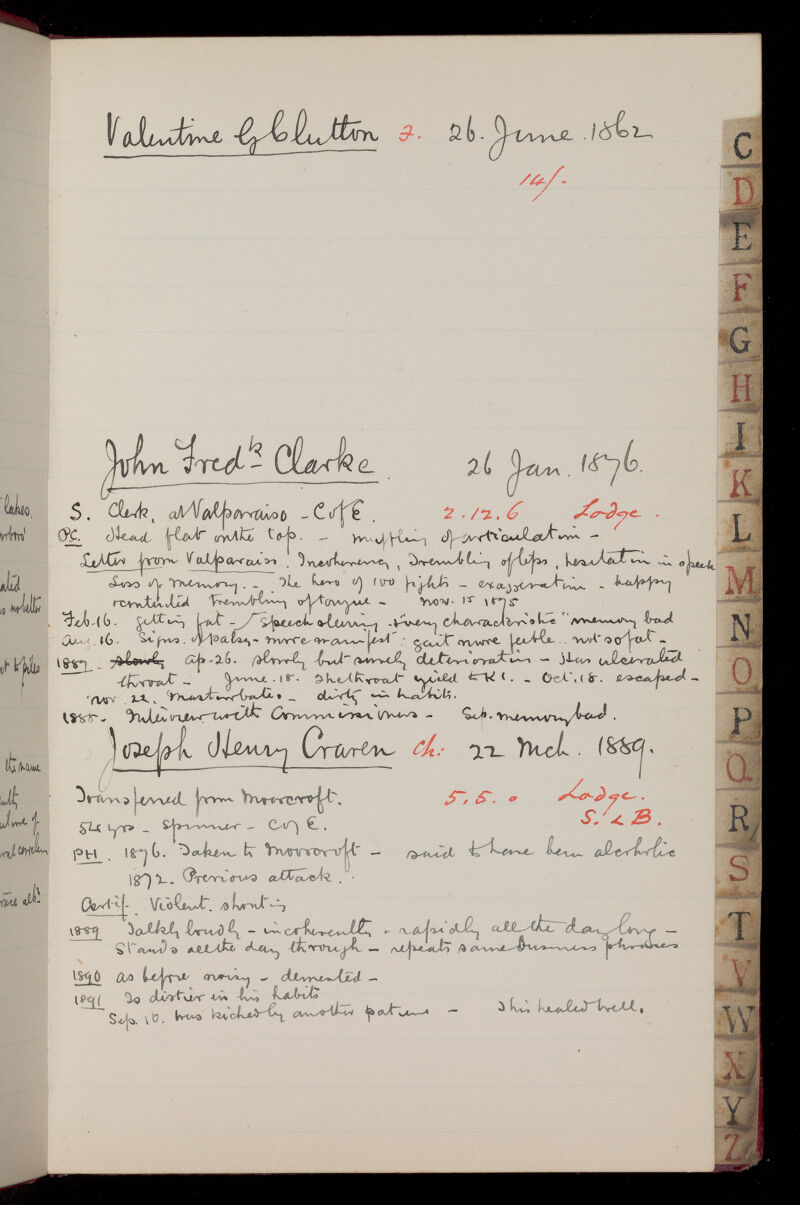 Valentine G Clutton F. 26. June. 1862
14/.
John Fredk Clarke. 26 Jan. 1876.
S. Clerk, at Valparaiso - C of E. 2.12.6 Lodge.
PC. Head flat on the top. - muffling of articulation -
Letter from Valparaiso. Incoherency, Trembling of lips, hesitation in speech
Loss of memory. - The hero of 100 fights - exaggeration - happy
contented trembling of tongue - Nov. 15 1875
Feb. 16. getting fat - speech slurring & very characteristic" memory bad
Aug. 16. Signs of palsy - more manifest: gait more feeble. not so fat -
1887. slowly Ap. 26. slowly but surely deteriorating - Has ulcerated
throat - June. 18. The throat yield to KI. - Oct. 18. escaped -
Nov. 22. Masturbates - dirty in habits.
1888. Interview with Commissioners - Sep. memory bad.
Joseph Henry Craven Ch: 22 Mch. 1889.
Transferred from Moorcroft. 5.5.0 Lodge.
yrs - Spinner - C of E. S. & B.
PH. 1876. Taken to Moorcroft - said to have been alcoholic
1872. Previous attack.
Certif. Violent. shouting
1889 Talks loudly - incoherently & rapidly all the day long -
Stands all the day through - repeats same business phrases
1890 as before noisy - demented -
1891 Is dirtier in his habits
Sep. 10. was kicked by another patient - This healed well.
C
D
E
F
G
H
I
K
L
M
N
O
P
Q
R
S
T
V
W
X
Y
Z